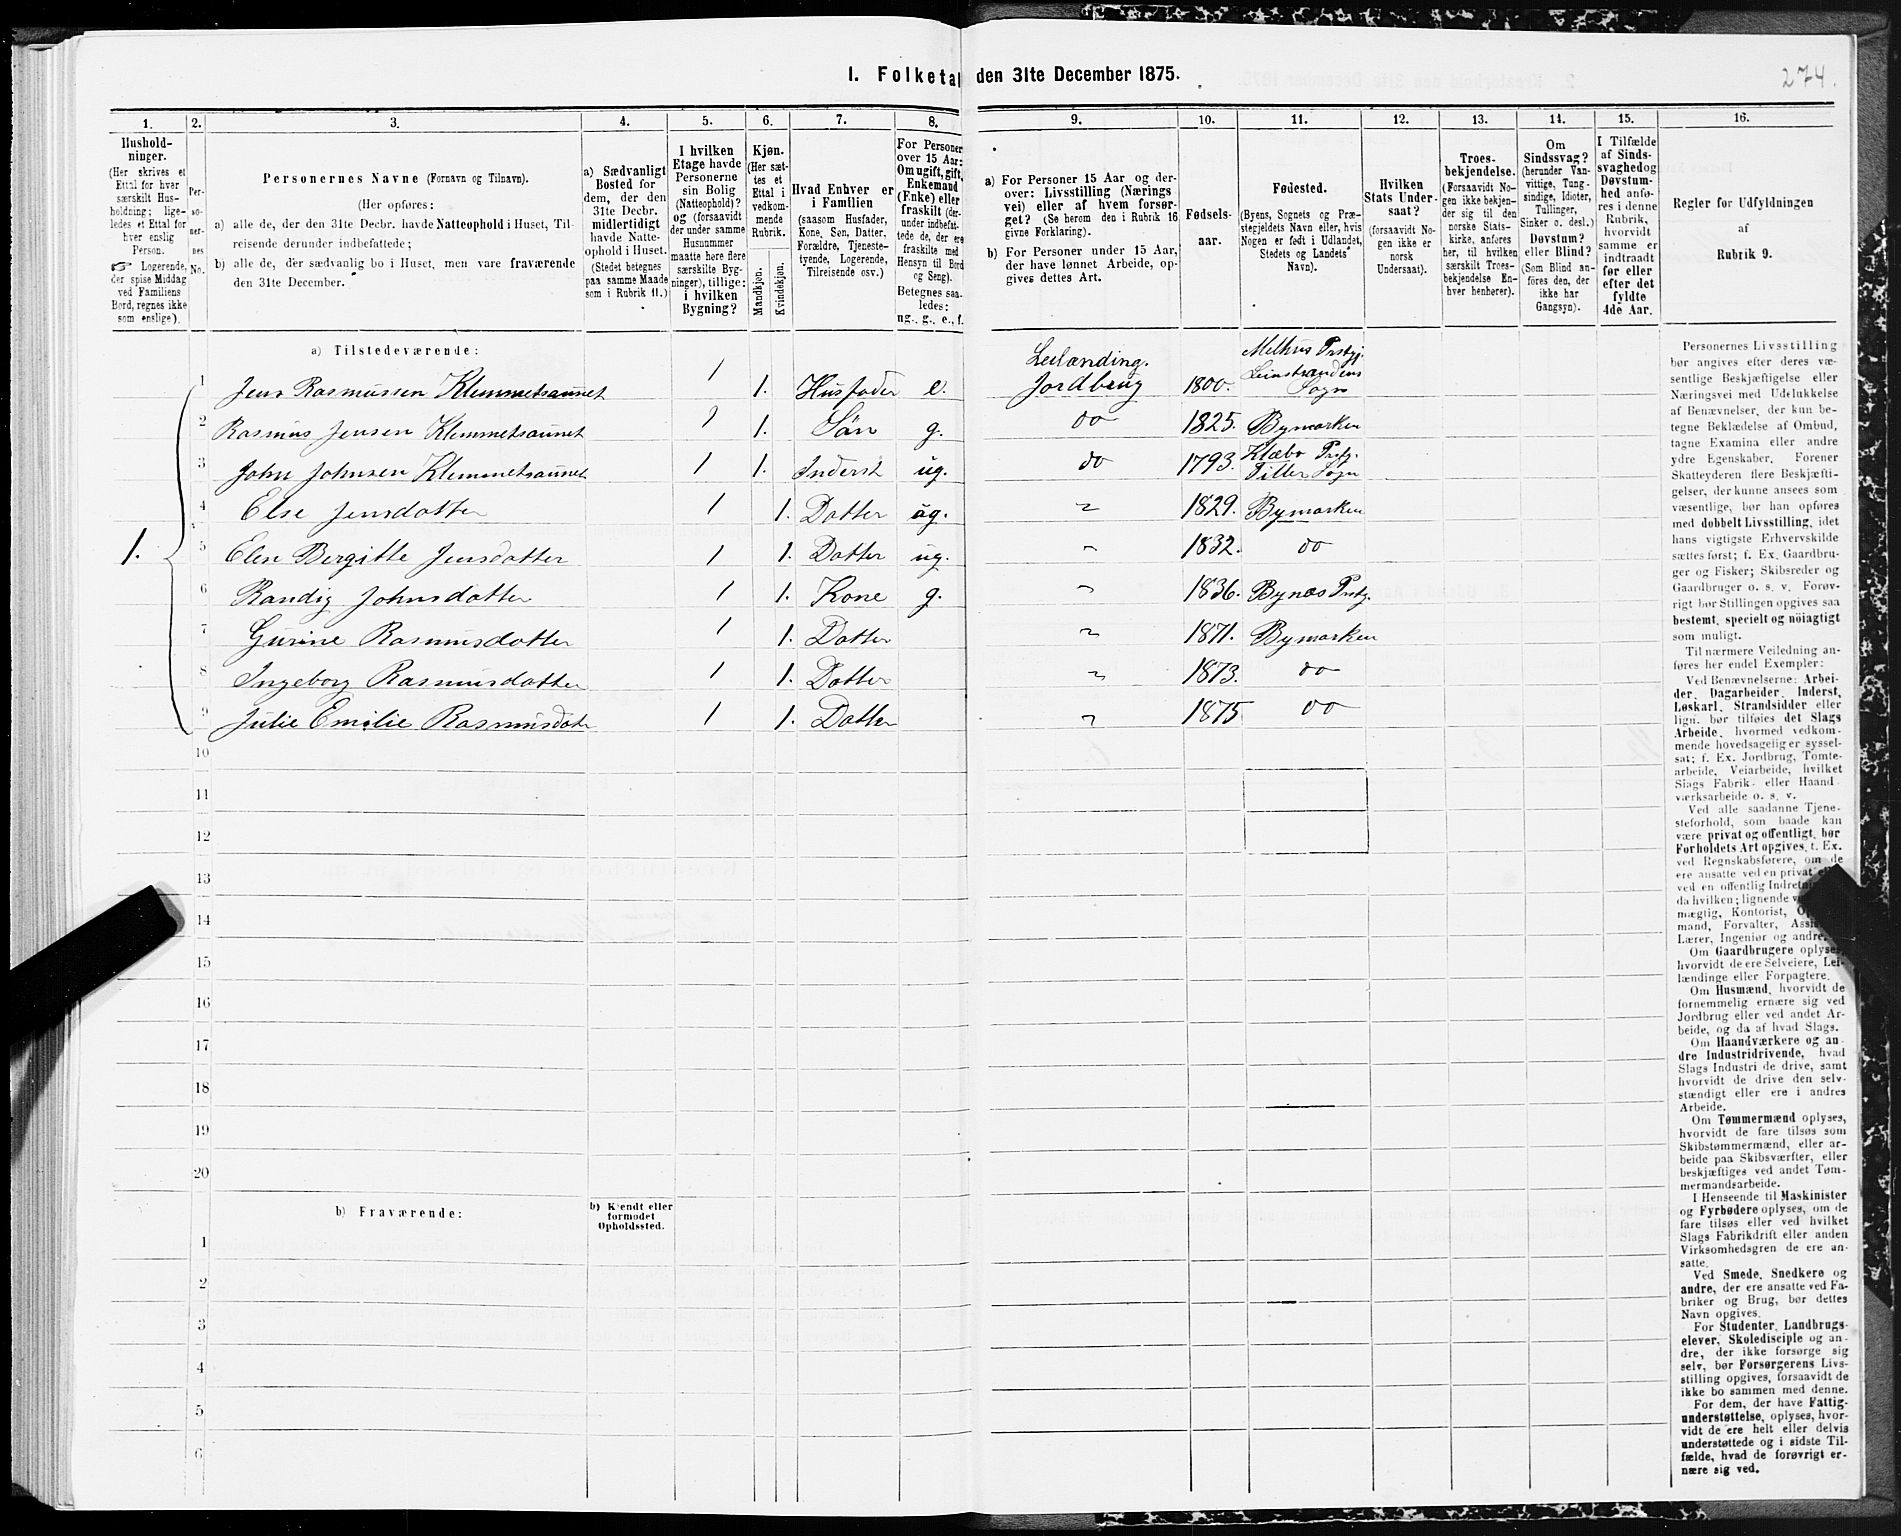 I. Folketal den 31te December 1875.
274.
1.
2.
3.
4.
5.
6.
7.
8.
9.
10.
11.
12.
13.
14.
15.
16.
Hushold-
ninger.
(Her skrives et
Ettal for hver
særskilt Hus-
holdning; lige-
ledes et Ettal for
hver enslig
Person.
☞ Logerende,
der spise Middag
ved Familiens
Bord, regnes ikke
som enslige).
Per-
so-
ner-
nes
No.
Personernes Navne (Fornavn og Tilnavn).
(Her opføres:
a) alle de, der den 31te Decbr. havde Natteophold i Huset, Til-
reisende derunder indbefattede;
b) alle de, der sædvanlig bo i Huset, men vare fraværende
den 31te December.
a) Sædvanligt
Bosted for
dem, der den
31te Decbr.
midlertidigt
havde Natte-
ophold i Huset.
(Stedet betegnes
paa samme Maade
som i Rubrik 11.)
I hvilken
Etage havde
Personerne
sin Bolig
(Natteophold)?
og (forsaavidt
der under samme
Husnummer
maatte høre flere
særskilte Byg-
ninger), tillige:
i hvilken
Bygning?
Kjøn.
(Her sæt-
tes et
Ettal i
vedkom-
mende
Rubrik.
Mandkjøn.
Kvindekjøn.
Hvad Enhver er
i Familien
(saasom Husfader,
Kone, Søn, Datter,
Forældre, Tjeneste-
tyende, Logerende,
Tilreisende osv.)
For Personer
over 15 Aar:
Om ugift, gift,
Enkemand
(Enke) eller
fraskilt (der-
under indbefat-
tede de, der ere
fraskilte med
Hensyn til Bord
og Seng).
Betegnes saa-
ledes:
ug., g., e., f.
a) For Personer 15 Aar og der-
over: Livsstilling (Nærings
vei) eller af hvem forsør-
get? (Se herom den i Rubrik 16
givne Forklaring).
b) For Personer under 15 Aar,
der have lønnet Arbeide, op-
gives dettes Art.
Fødsels-
aar.
Fødested.
(Byens, Sognets og Præ-
stegjeldets Navn eller, hvis
Nogen er født i Udlandet,
Stedets og Landets
Navn).
Hvilken
Stats Under-
saat?
(forsaavidt No-
gen ikke er
norsk
Undersaat).
Troes-
bekjendelse.
(Forsaavidt No-
gen ikke bekjen-
der sig til den
norske Stats-
kirke, anføres
her, til hvilken
særskilt Troes-
bekjendelse En-
hver henhører).
Om
Sindssvag?
(herunder Van-
vittige, Tung-
sindige, Idioter,
Tullinger,
Sinker o. desl.)
Døvstum?
eller Blind?
(Som Blind an-
føres den, der
ikke har
Gangsyn).
I Tilfælde
af Sinds-
svaghed og
Døvstum-
hed anfø-
res i denne
Rubrik,
hvorvidt
samme er
indtraadt
før eller
efter det
fyldte
4de Aar.
Regler for Udfyldningen
af
Rubrik 9.
a) Tilstedeværende:
1.
1 Jens Rasmussen Klemmetsaunet 1 1. Husfader e. Leilænding. Jordbrug 1800. Melhus Prstgj. Leinstrandens Sogn
2 Rasmus Jensen Klemmetsaunet 1 1. Søn g. do 1825. Bymarken
3 John Johnsen Klemmetsaunet 1 1. Inderst ug. do 1793. Klæbo Prstg. Tiller Sogn
4 Else Jensdatter 1 1. Datter ug. " 1829. Bymarken
5 Elen Bergitte Jensdatter 1 1. Datter ug. " 1832. do
6 Randig Johnsdatter 1 1. Kone g. " 1836. Bynæs Prstgj.
7 Gurine Rasmusdatter 1 1. Datter " 1871. Bymarken
8 Ingeborg Rasmusdatter 1 1. Datter " 1873. do
9 Julie Emilie Rasmusdatr 1 1. Datter " 1875 do
10
11
12
13
14
15
16
17
18
19
20
b) Fraværende:
b) Kjendt eller
formodet
Opholdssted.
1
2
3
4
5
6
Personernes Livsstilling
bør angives efter deres væ-
sentlige Beskjæftigelse eller
Næringsvei med Udelukkelse
af Benævnelser, der kun be-
tegne Beklædelse af Ombud,
tagne Examina eller andre
ydre Egenskaber. Forener
Skatteyderen flere Beskjæfti-
gelser, der kunne ansees som
væsentlige, bør han opføres
med dobbelt Livsstilling, idet
hans vigtigste Erhvervskilde
sættes først; f. Ex. Gaardbru-
ger og Fisker; Skibsreder og
Gaardbruger o. s. v. Forøv-
rigt bør Stillingen opgives saa
bestemt, specielt og nöiagtigt
som muligt.
Til nærmere Veiledning an-
føres her endel Exempler:
Ved Benævnelserne: Arbei-
der, Dagarbeider, Inderst,
Løskarl, Strandsidder eller
lign. bør tilføies det Slags
Arbeide, hvormed vedkom-
mende hovedsagelig er syssel-
sat; f. Ex. Jordbrug, Tomte-
arbeide, Veiarbeide, hvilket
Slags Fabrik- eller Haand
værksarbeide o. s. v.
Ved alle saadanne Tjene-
steforhold, som baade kan
være privat og offentligt, bør
Forholdets Art opgives, t. Ex.
ved Regnskabsførere, om de
ere ansatte ved en privat
ved en offentlig
da hvilken; lignende
mægtig, Kontorist,
mand, Forvalter,
Lærer, Ingeniør og andre.
Om Gaardbrugere oplyses,
hvorvidt de ere Selveiere, Lei-
lændinge eller Forpagtere.
Om Husmænd, hvorvidt de
fornemmelig ernære sig ved
Jordbrug eller ved andet Ar-
beide, og da af hvad Slags.
Om Haandværkere og an-
dre Industridrivende, hvad
Slags Industri de drive, samt
hvorvidt de drive den selv-
stændigt eller ere i andres
Arbeide.
Om Tømmermænd oplyses,
hvorvidt de fare tilsøs som
Skibstømmermænd, eller ar-
beide paa Skibsværfter, eller
beskjæftiges ved andet Tøm-
mermandsarbeide.
I Henseende til Maskinister
og Fyrbødere oplyses, om de
fare tilsøs eller ved hvilket
Slags Fabrikdrift eller anden
Virksomhedsgren de ere an-
satte.
Ved Smede, Snedkere og
andre, der ere ansatte ved Fa-
briker og Brug, bør dettes
Navn opgives.
For Studenter, Landbrugs-
elever, Skoledisciple og an-
dre, der ikke forsørge sig
selv, bør Forsørgerens Livs-
stilling opgives, forsaavidt de
ikke bo sammen med denne.
For dem, der have Fattig-
understøttelse, oplyses, hvor-
vidt de ere helt eller delvis
understøttede og i sidste Til-
fælde, hvad de forøvrigt er-
nære sig ved.